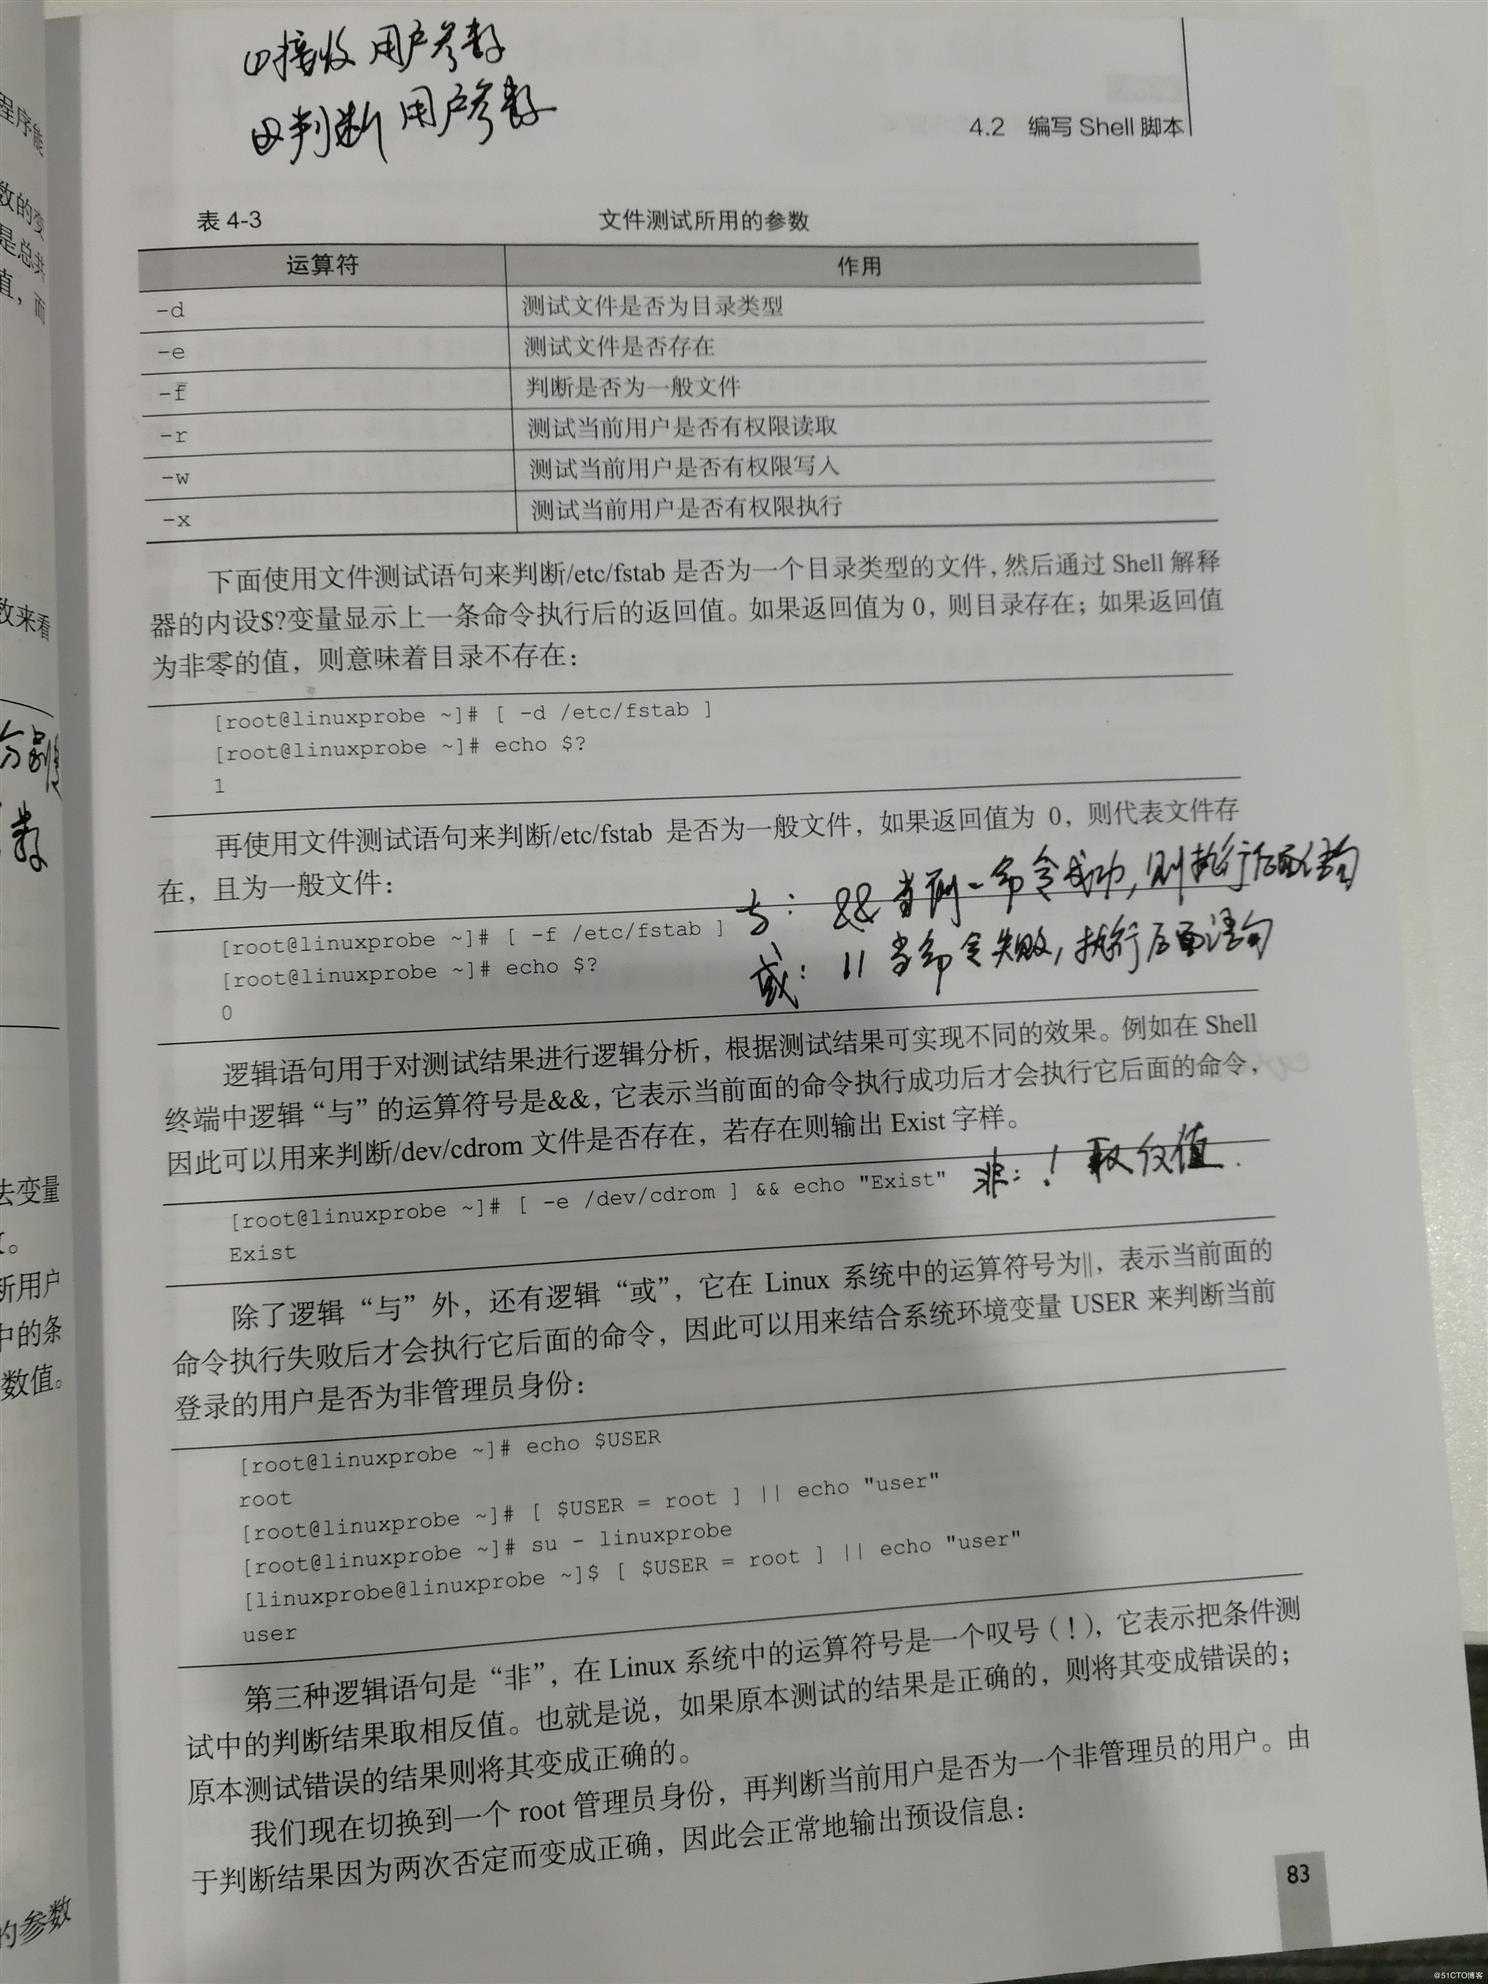 ①接收用户参数
②判断用户参数
4.2 编写 Shell 脚本
表 4-3 文件测试所用的参数
运算符 作用
-d 测试文件是否为目录类型
-e 测试文件是否存在
-f 判断是否为一般文件
-r 测试当前用户是否有权限读取
-w 测试当前用户是否有权限写入
-x 测试当前用户是否有权限执行
下面使用文件测试语句来判断/etc/fstab 是否为一个目录类型的文件，然后通过 Shell 解释
器的内设$?变量显示上一条命令执行后的返回值。如果返回值为 0，则目录存在；如果返回值
为非零的值，则意味着目录不存在：
[root@linuxprobe ~]# [ -d /etc/fstab ]
[root@linuxprobe ~]# echo $?
1
再使用文件测试语句来判断/etc/fstab 是否为一般文件，如果返回值为 0，则代表文件存
在，且为一般文件：
与：&& 当前一命令成功，则执行后面语句
[root@linuxprobe ~]# [ -f /etc/fstab ]
或：|| 当命令失败，执行后面语句
[root@linuxprobe ~]# echo $?
0
逻辑语句用于对测试结果进行逻辑分析，根据测试结果可实现不同的效果。例如在 Shell
终端中逻辑“与”的运算符号是&&，它表示当前面的命令执行成功后才会执行它后面的命令，
因此可以用来判断/dev/cdrom 文件是否存在，若存在则输出 Exist 字样。
[root@linuxprobe ~]# [ -e /dev/cdrom ] && echo "Exist"
非：! 取反值.
Exist
除了逻辑“与”外，还有逻辑“或”，它在 Linux 系统中的运算符号为||，表示当前面的
命令执行失败后才会执行它后面的命令，因此可以用来结合系统环境变量 USER 来判断当前
登录的用户是否为非管理员身份：
[root@linuxprobe ~]# echo $USER
root
[root@linuxprobe ~]# [ $USER = root ] || echo "user"
[root@linuxprobe ~]# su - linuxprobe
[linuxprobe@linuxprobe ~]$ [ $USER = root ] || echo "user"
user
第三种逻辑语句是“非”，在 Linux 系统中的运算符号是一个叹号（!），它表示把条件测
试中的判断结果取相反值。也就是说，如果原本测试的结果是正确的，则将其变成错误的；
原本测试错误的结果则将其变成正确的。
我们现在切换到一个 root 管理员身份，再判断当前用户是否为一个非管理员的用户。由
于判断结果因为两次否定而变成正确，因此会正常地输出预设信息：
83
程序能
数的变
是总共
值，而
数来看
去变量
新用户
中的条
数值。
的参数
@51CTO博客